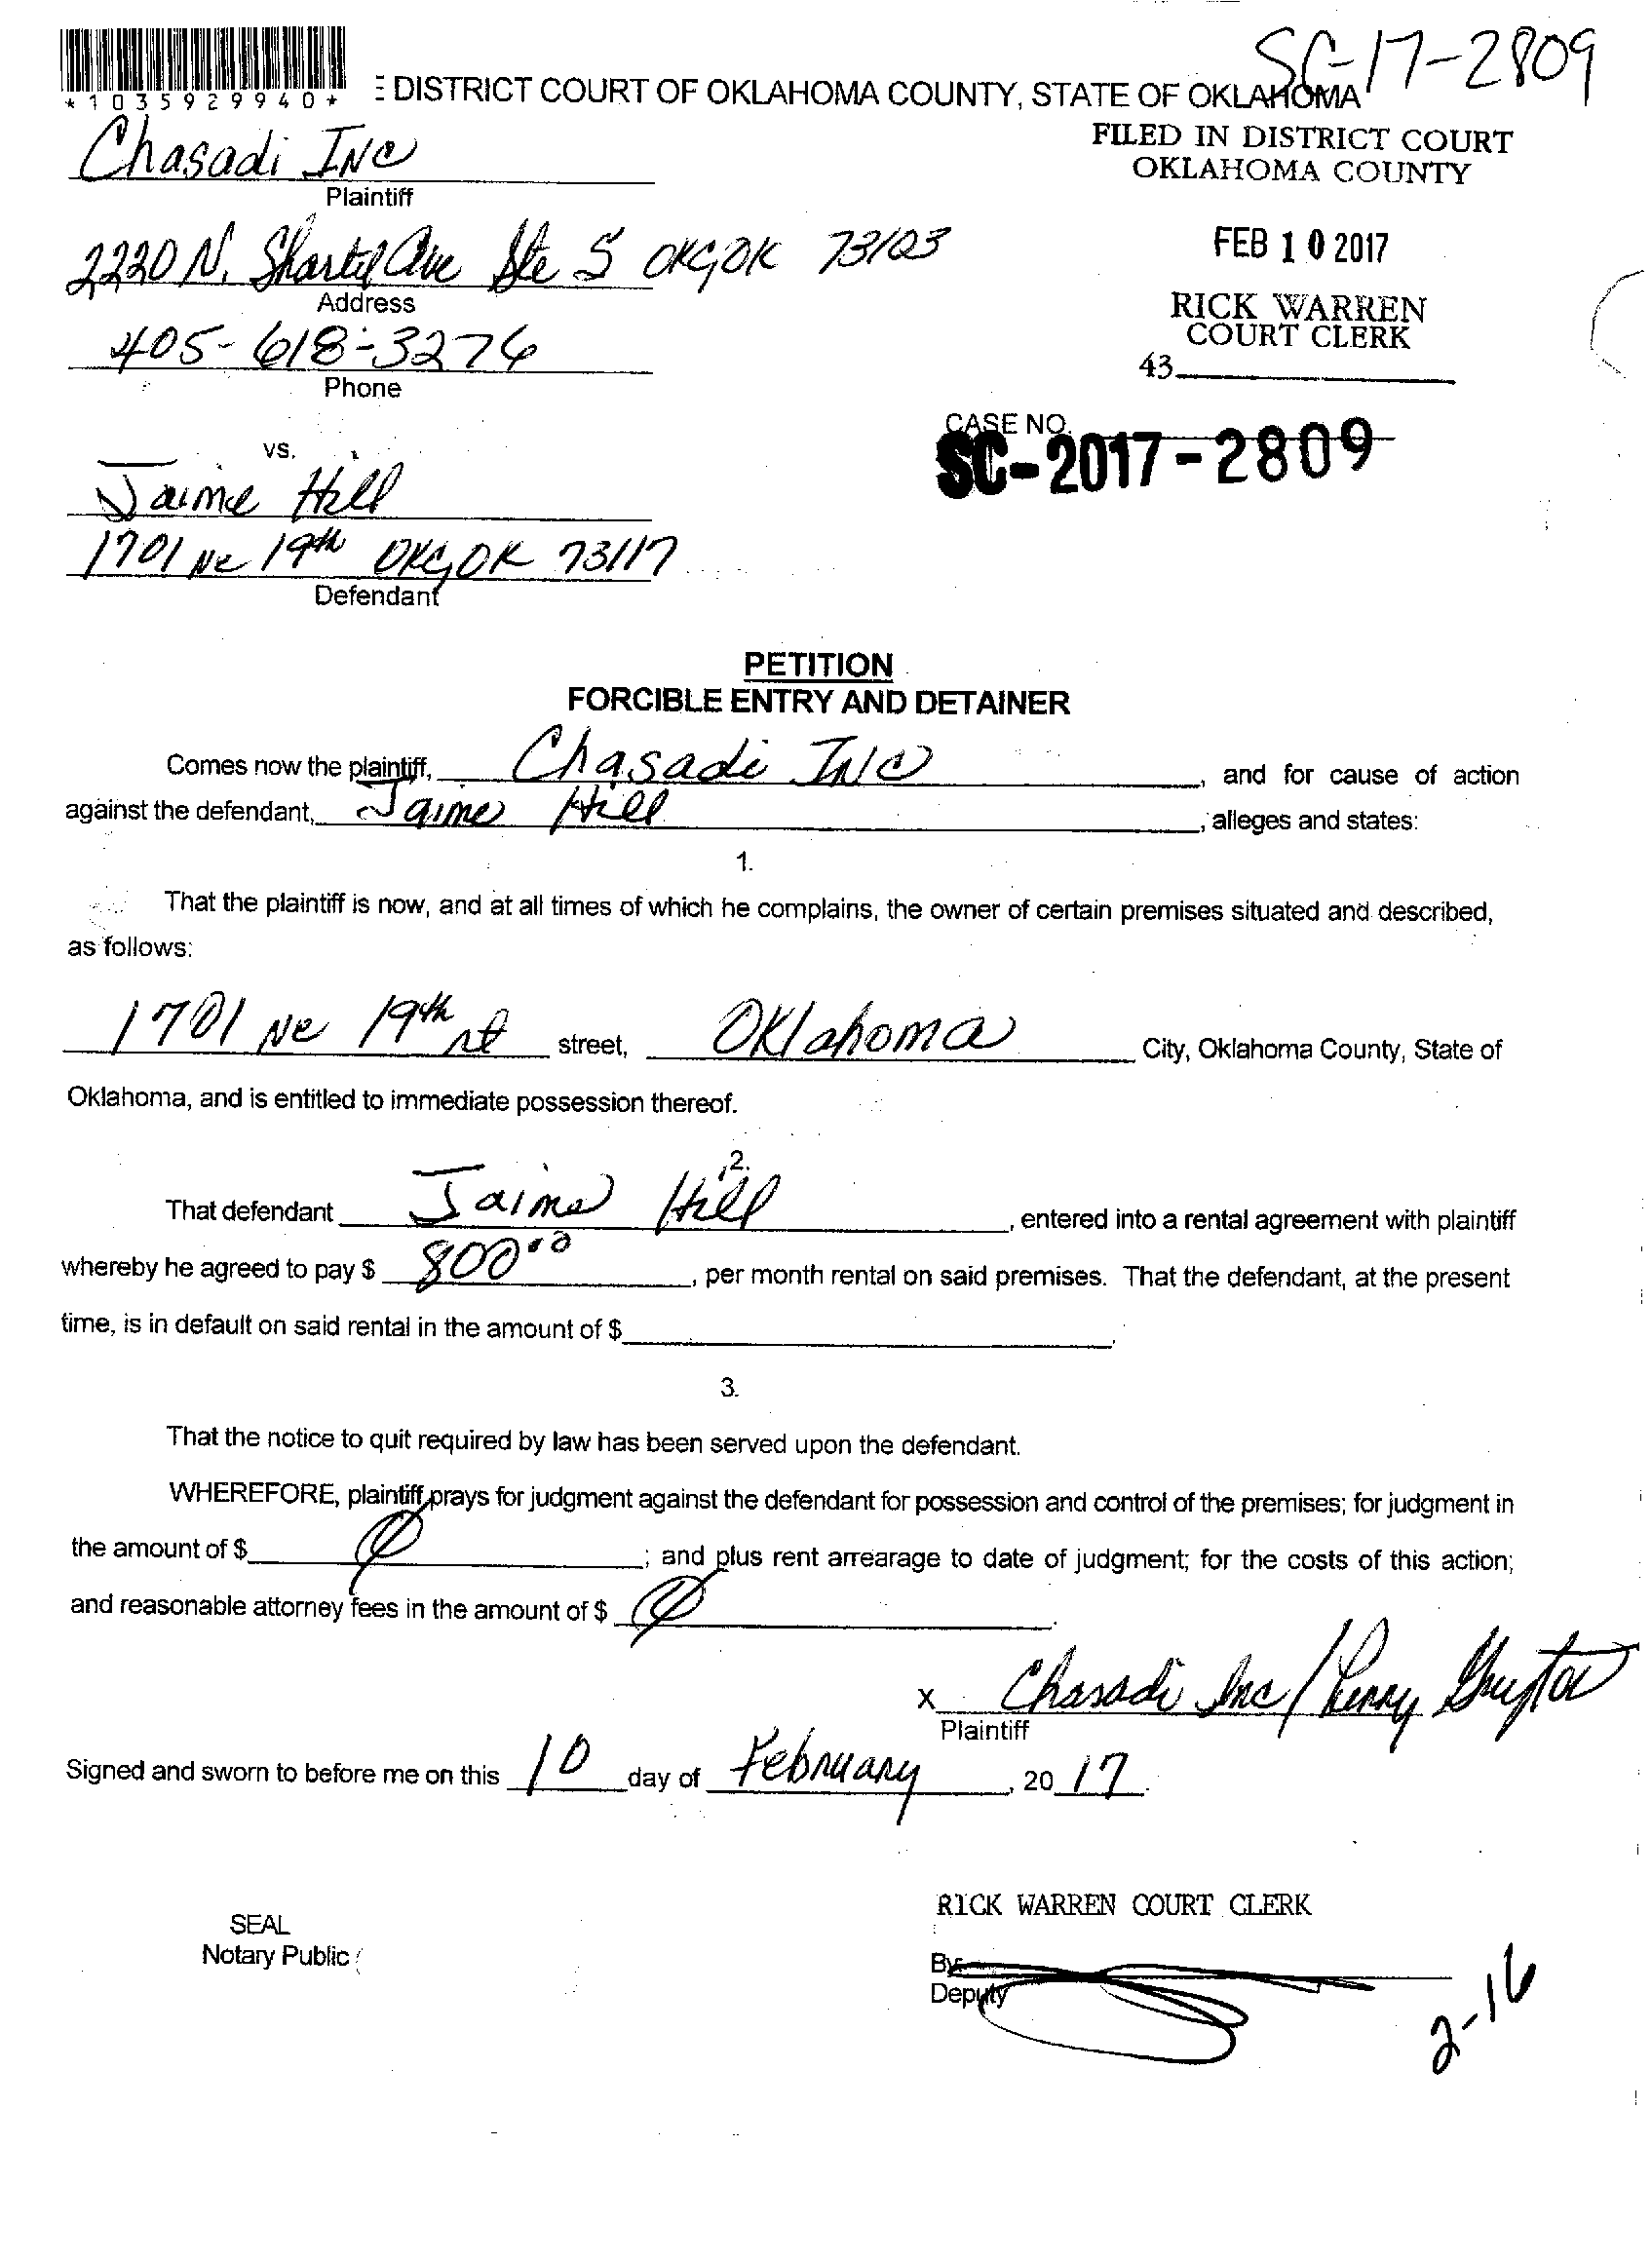 SC-17-2809
*1035929940*
E DISTRICT COURT OF OKLAHOMA COUNTY, STATE OF OKLAHOMA
FILED IN DISTRICT COURT
OKLAHOMA COUNTY
Chasadi INC
Plaintiff
FEB 10 2017
2220 N. Shartel Ave Ste S OKC, OK 73103
Address
RICK WARREN
COURT CLERK
405-618-3276
Phone
43
CASE NO.
SC-2017-2809
vs.
Jaime Hill
1701 Ne 19th OKC, OK 73117
Defendant
PETITION
FORCIBLE ENTRY AND DETAINER
Comes now the plaintiff, Chasadi INC, and for cause of action
against the defendant, Jaime Hill, alleges and states:
1.
That the plaintiff is now, and at all times of which he complains, the owner of certain premises situated and described,
as follows:
1701 Ne 19th st street, Oklahoma City, Oklahoma County, State of
Oklahoma, and is entitled to immediate possession thereof.
2.
That defendant Jaime Hill, entered into a rental agreement with plaintiff
whereby he agreed to pay $ 800.00, per month rental on said premises. That the defendant, at the present
time, is in default on said rental in the amount of $.
3.
That the notice to quit required by law has been served upon the defendant.
WHEREFORE, plaintiff prays for judgment against the defendant for possession and control of the premises; for judgment in
the amount of $ 0; and plus rent arrearage to date of judgment; for the costs of this action;
and reasonable attorney fees in the amount of $ 0.
x Chasadi Inc/
Plaintiff
Signed and sworn to before me on this 10 day of February, 2017.
RICK WARREN COURT CLERK
SEAL
Notary Public
By
Deputy
2-16